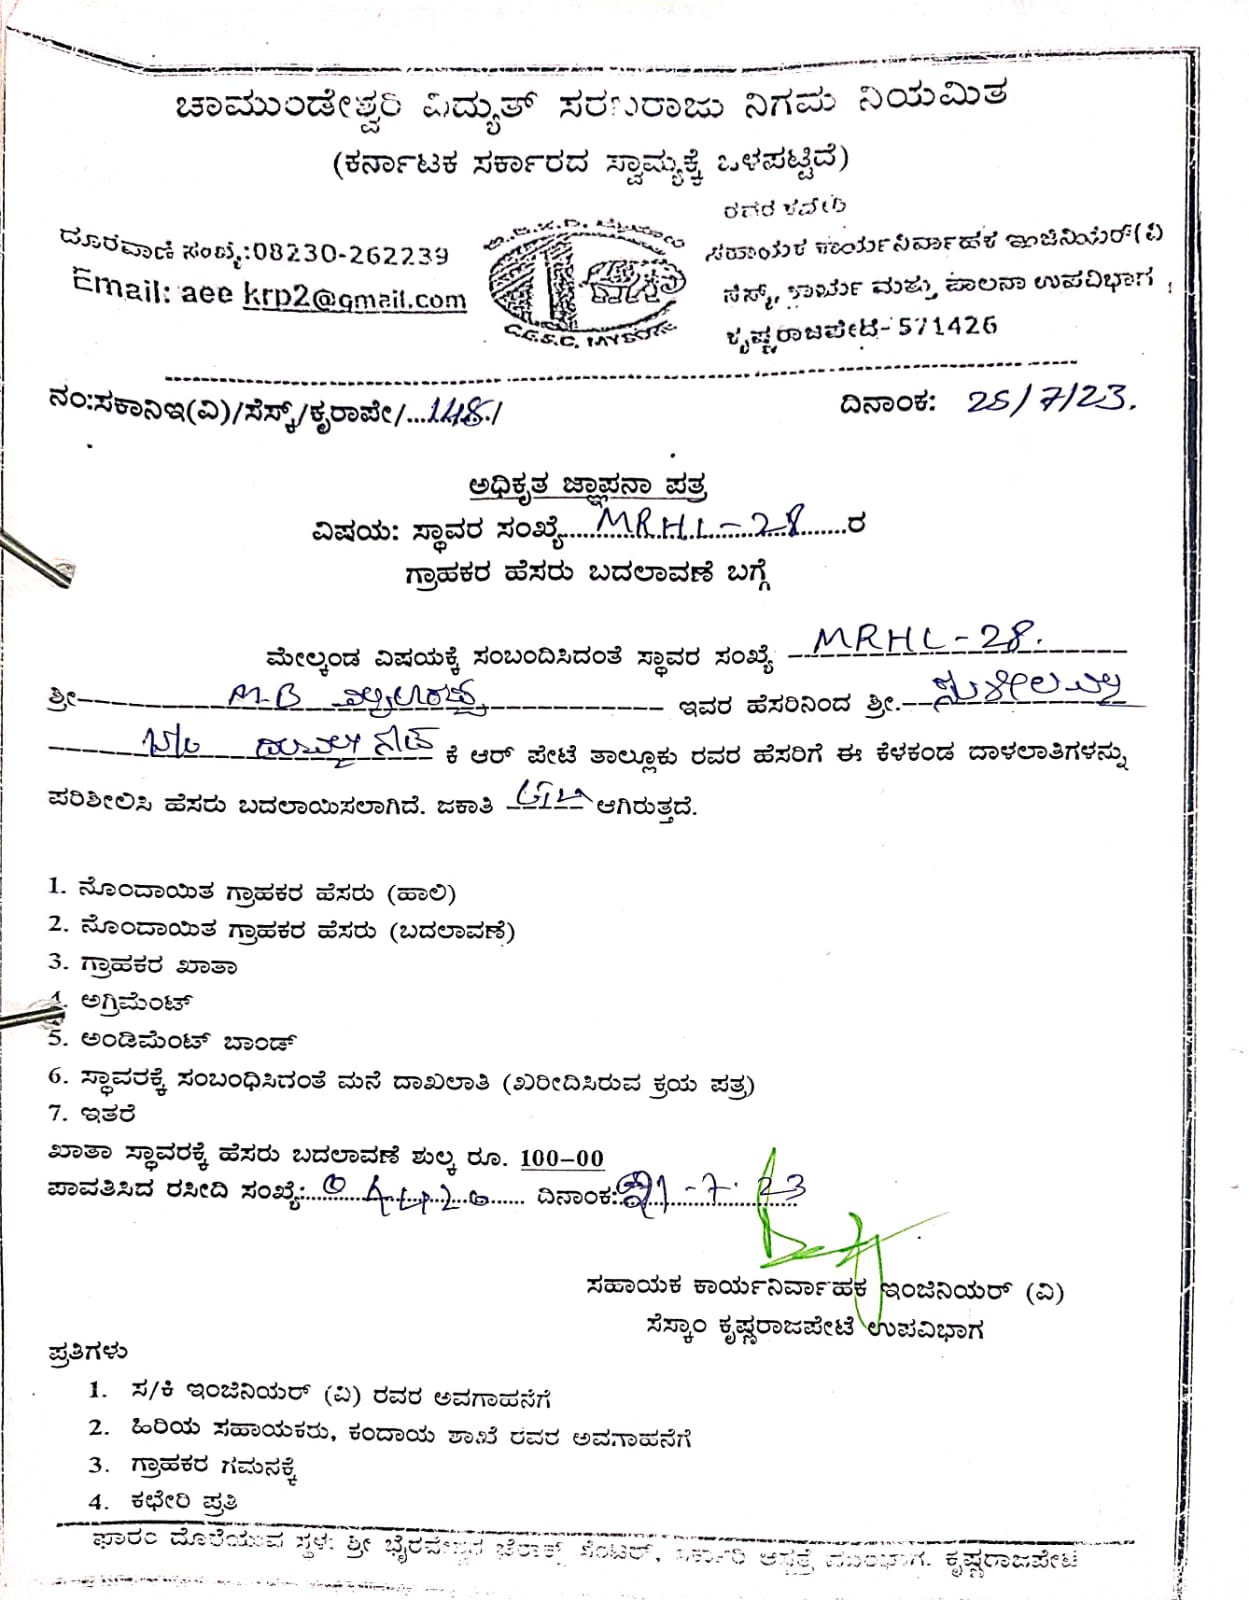 ಚಾಮುಂಡೇಶ್ವರಿ ವಿದ್ಯುತ್ ಸರಬರಾಜು ನಿಗಮ ನಿಯಮಿತ
(ಕರ್ನಾಟಕ ಸರ್ಕಾರದ ಸ್ವಾಮ್ಯಕ್ಕೆ ಒಳಪಟ್ಟಿದೆ)
ದೂರವಾಣಿ ಸಂಖ್ಯೆ:08230-262239
Email: aee krp2@gmail.com
C.E.S.C. MYSORE
ರವರ ಕಛೇರಿ
ಸಹಾಯಕ ಕಾರ್ಯನಿರ್ವಾಹಕ ಇಂಜಿನಿಯರ್(ವಿ
ಸೆಸ್ಕ್, ಕಾರ್ಯ ಮತ್ತು ಪಾಲನಾ ಉಪವಿಭಾಗ ,
ಕೃಷ್ಣರಾಜಪೇಟೆ- 571426
ನಂ:ಸಕಾನಿಇ(ವಿ)/ಸೆಸ್ಕ್/ಕೃರಾಪೇ/...148./ ದಿನಾಂಕ: 25/7/23.
ಅಧಿಕೃತ ಜ್ಞಾಪನಾ ಪತ್ರ
ವಿಷಯ: ಸ್ಥಾವರ ಸಂಖ್ಯೆ......MRHL-28......ರ
ಗ್ರಾಹಕರ ಹೆಸರು ಬದಲಾವಣೆ ಬಗ್ಗೆ
ಮೇಲ್ಕಂಡ ವಿಷಯಕ್ಕೆ ಸಂಬಂದಿಸಿದಂತೆ ಸ್ಥಾವರ ಸಂಖ್ಯೆ MRHL-28.
ಶ್ರೀ M-B ಇವರ ಹೆಸರಿನಿಂದ ಶ್ರೀ. ಸುಶೀಲಮ್ಮ
ಕೆ ಆರ್ ಪೇಟೆ ತಾಲ್ಲೂಕು ರವರ ಹೆಸರಿಗೆ ಈ ಕೆಳಕಂಡ ದಾಳಲಾತಿಗಳನ್ನು
ಪರಿಶೀಲಿಸಿ ಹೆಸರು ಬದಲಾಯಿಸಲಾಗಿದೆ. ಜಕಾತಿ ಆಗಿರುತ್ತದೆ.
1. ನೊಂದಾಯಿತ ಗ್ರಾಹಕರ ಹೆಸರು (ಹಾಲಿ)
2. ನೊಂದಾಯಿತ ಗ್ರಾಹಕರ ಹೆಸರು (ಬದಲಾವಣೆ)
3. ಗ್ರಾಹಕರ ಖಾತಾ
4. ಅಗ್ರಿಮೆಂಟ್
5. ಅಂಡಿಮೆಂಟ್ ಬಾಂಡ್
6. ಸ್ಥಾವರಕ್ಕೆ ಸಂಬಂಧಿಸಿದಂತೆ ಮನೆ ದಾಖಲಾತಿ (ಖರೀದಿಸಿರುವ ಕ್ರಯ ಪತ್ರ)
7. ಇತರೆ
ಖಾತಾ ಸ್ಥಾವರಕ್ಕೆ ಹೆಸರು ಬದಲಾವಣೆ ಶುಲ್ಕ ರೂ. 100-00
ಪಾವತಿಸಿದ ರಸೀದಿ ಸಂಖ್ಯೆ: ದಿನಾಂಕ: 21-7-23
ಸಹಾಯಕ ಕಾರ್ಯನಿರ್ವಾಹಕ ಇಂಜಿನಿಯರ್ (ವಿ)
ಸೆಸ್ಕಾಂ ಕೃಷ್ಣರಾಜಪೇಟೆ ಉಪವಿಭಾಗ
ಪ್ರತಿಗಳು
1. ಸ/ಕಿ ಇಂಜಿನಿಯರ್ (ವಿ) ರವರ ಅವಗಾಹನೆಗೆ
2. ಹಿರಿಯ ಸಹಾಯಕರು, ಕಂದಾಯ ಶಾಖೆ ರವರ ಅವಗಾಹನೆಗೆ
3. ಗ್ರಾಹಕರ ಗಮನಕ್ಕೆ
4. ಕಛೇರಿ ಪ್ರತಿ
ಫಾರಂ ದೊರೆಯುವ ಸ್ಥಳ: ಶ್ರೀ ಭೈರವೇಶ್ವರ ಜೆರಾಕ್ಸ್ ಸೆಂಟರ್, ಸರ್ಕಾರಿ ಆಸ್ಪತ್ರೆ ಮುಂಭಾಗ. ಕೃಷ್ಣರಾಜಪೇಟೆ